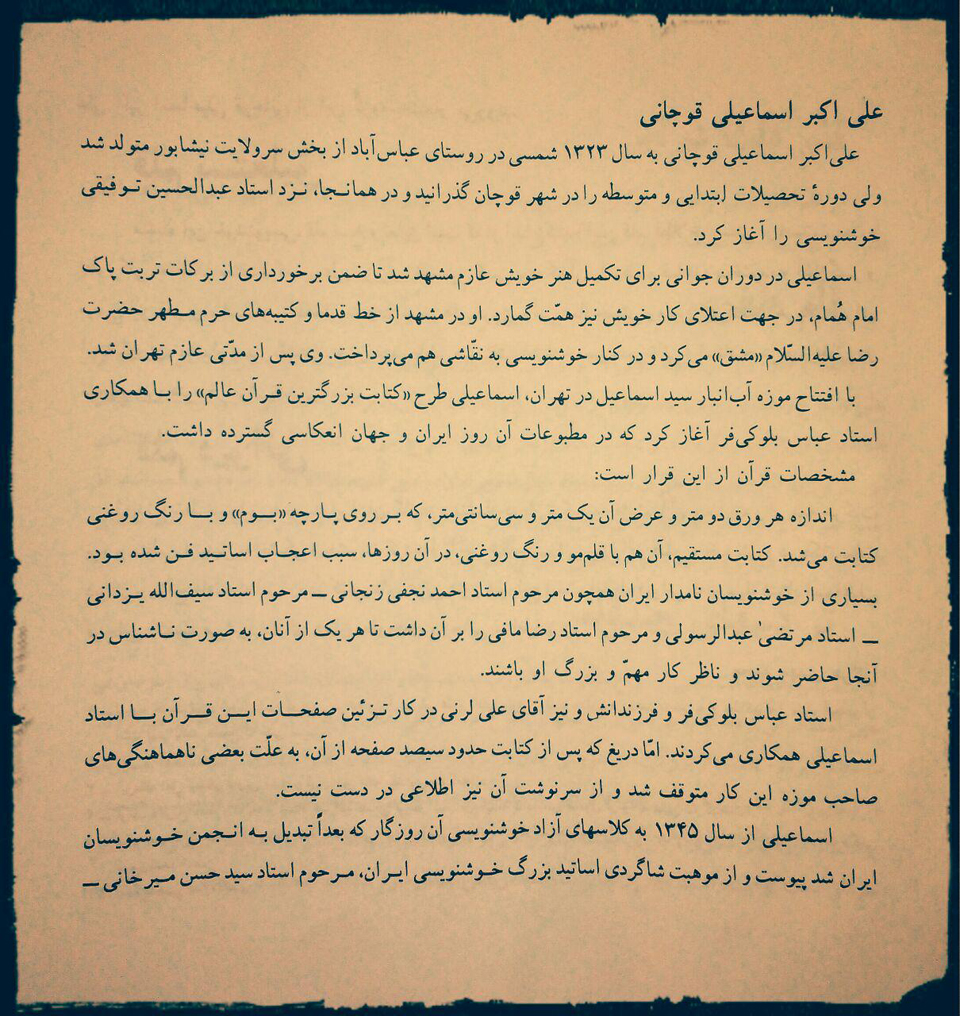 علی اکبر اسماعیلی قوچانی
علی‌اکبر اسماعیلی قوچانی به سال ۱۳۲۳ شمسی در روستای عباس‌آباد از بخش سرولایت نیشابور متولد شد
ولی دورهٔ تحصیلات ابتدایی و متوسطه را در شهر قوچان گذرانید و در همانـجا، نـزد استاد عبدالحسین تـوفیقی
خوشنویسی را آغاز کرد.
اسماعیلی در دوران جوانی برای تکمیل هنر خویش عازم مشهد شد تا ضمن برخورداری از برکات تربت پاک
امام هُمام، در جهت اعتلای کار خویش نیز همّت گمارد. او در مشهد از خط قدما و کتیبه‌های حرم مـطهر حضرت
رضا علیه‌السّلام «مشق» می‌کرد و در کنار خوشنویسی به نقّاشی هم می‌پرداخت. وی پس از مدّتی عازم تهران شد.
با افتتاح موزه آب‌انبار سید اسماعیل در تهران، اسماعیلی طرح «کتابت بزرگترین قـرآن عالم» را بـا همکاری
استاد عباس بلوکی‌فر آغاز کرد که در مطبوعات آن روز ایران و جهان انعکاسی گسترده داشت.
مشخصات قرآن از این قرار است:
اندازه هر ورق دو متر و عرض آن یک متر و سی‌سانتی‌متر، که بـر روی پـارچه «بـوم» و بـا رنگ روغنی
کتابت می‌شد. کتابت مستقیم، آن هم با قلم‌مو و رنگ روغنی، در آن روزها، سبب اعجـاب اساتـید فـن شده بـود.
بسیاری از خوشنویسان نامدار ایران همچون مرحوم استاد احمد نجفی زنجانی ـ مرحوم استاد سیف‌الله یـزدانی
ـ استاد مرتضیٰ عبدالرسولی و مرحوم استاد رضا مافی را بر آن داشت تا هر یک از آنان، به صورت نـاشناس در
آنجا حاضر شوند و ناظر کار مهمّ و بزرگ او باشند.
استاد عباس بلوکی‌فر و فرزندانش و نیز آقای علی لرنی در کار تـزئین صفحـات ایـن قـرآن بـا استاد
اسماعیلی همکاری می‌کردند. امّا دریغ که پس از کتابت حدود سیصد صفحه از آن، به علّت بعضی ناهماهنگی‌های
صاحب موزه این کار متوقف شد و از سرنوشت آن نیز اطلاعی در دست نیست.
اسماعیلی از سال ۱۳۴۵ به کلاسهای آزاد خوشنویسی آن روزگار که بعداً تبدیل بـه انـجمن خـوشنویسان
ایران شد پیوست و از موهبت شاگردی اساتید بزرگ خـوشنویسی ایـران، مـرحوم استاد سید حسن مـیرخانی ـ